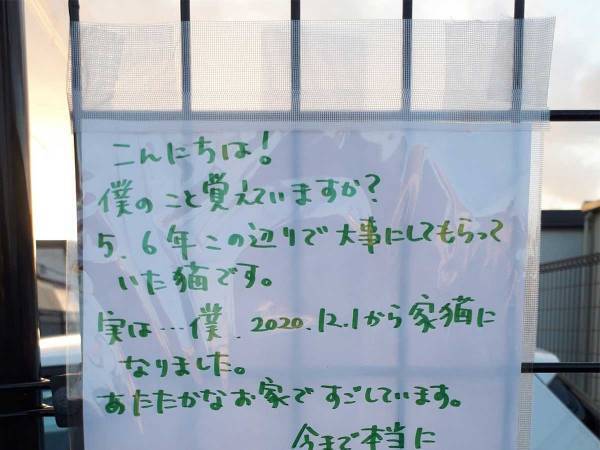 こんにちは!
僕のこと覚えていますか?
5.6年この辺りで大事にしてもらって
いた猫です。
実は…僕、2020.12.1から家猫に
なりました。
あたたかなお家ですごしています。
今まで本当に